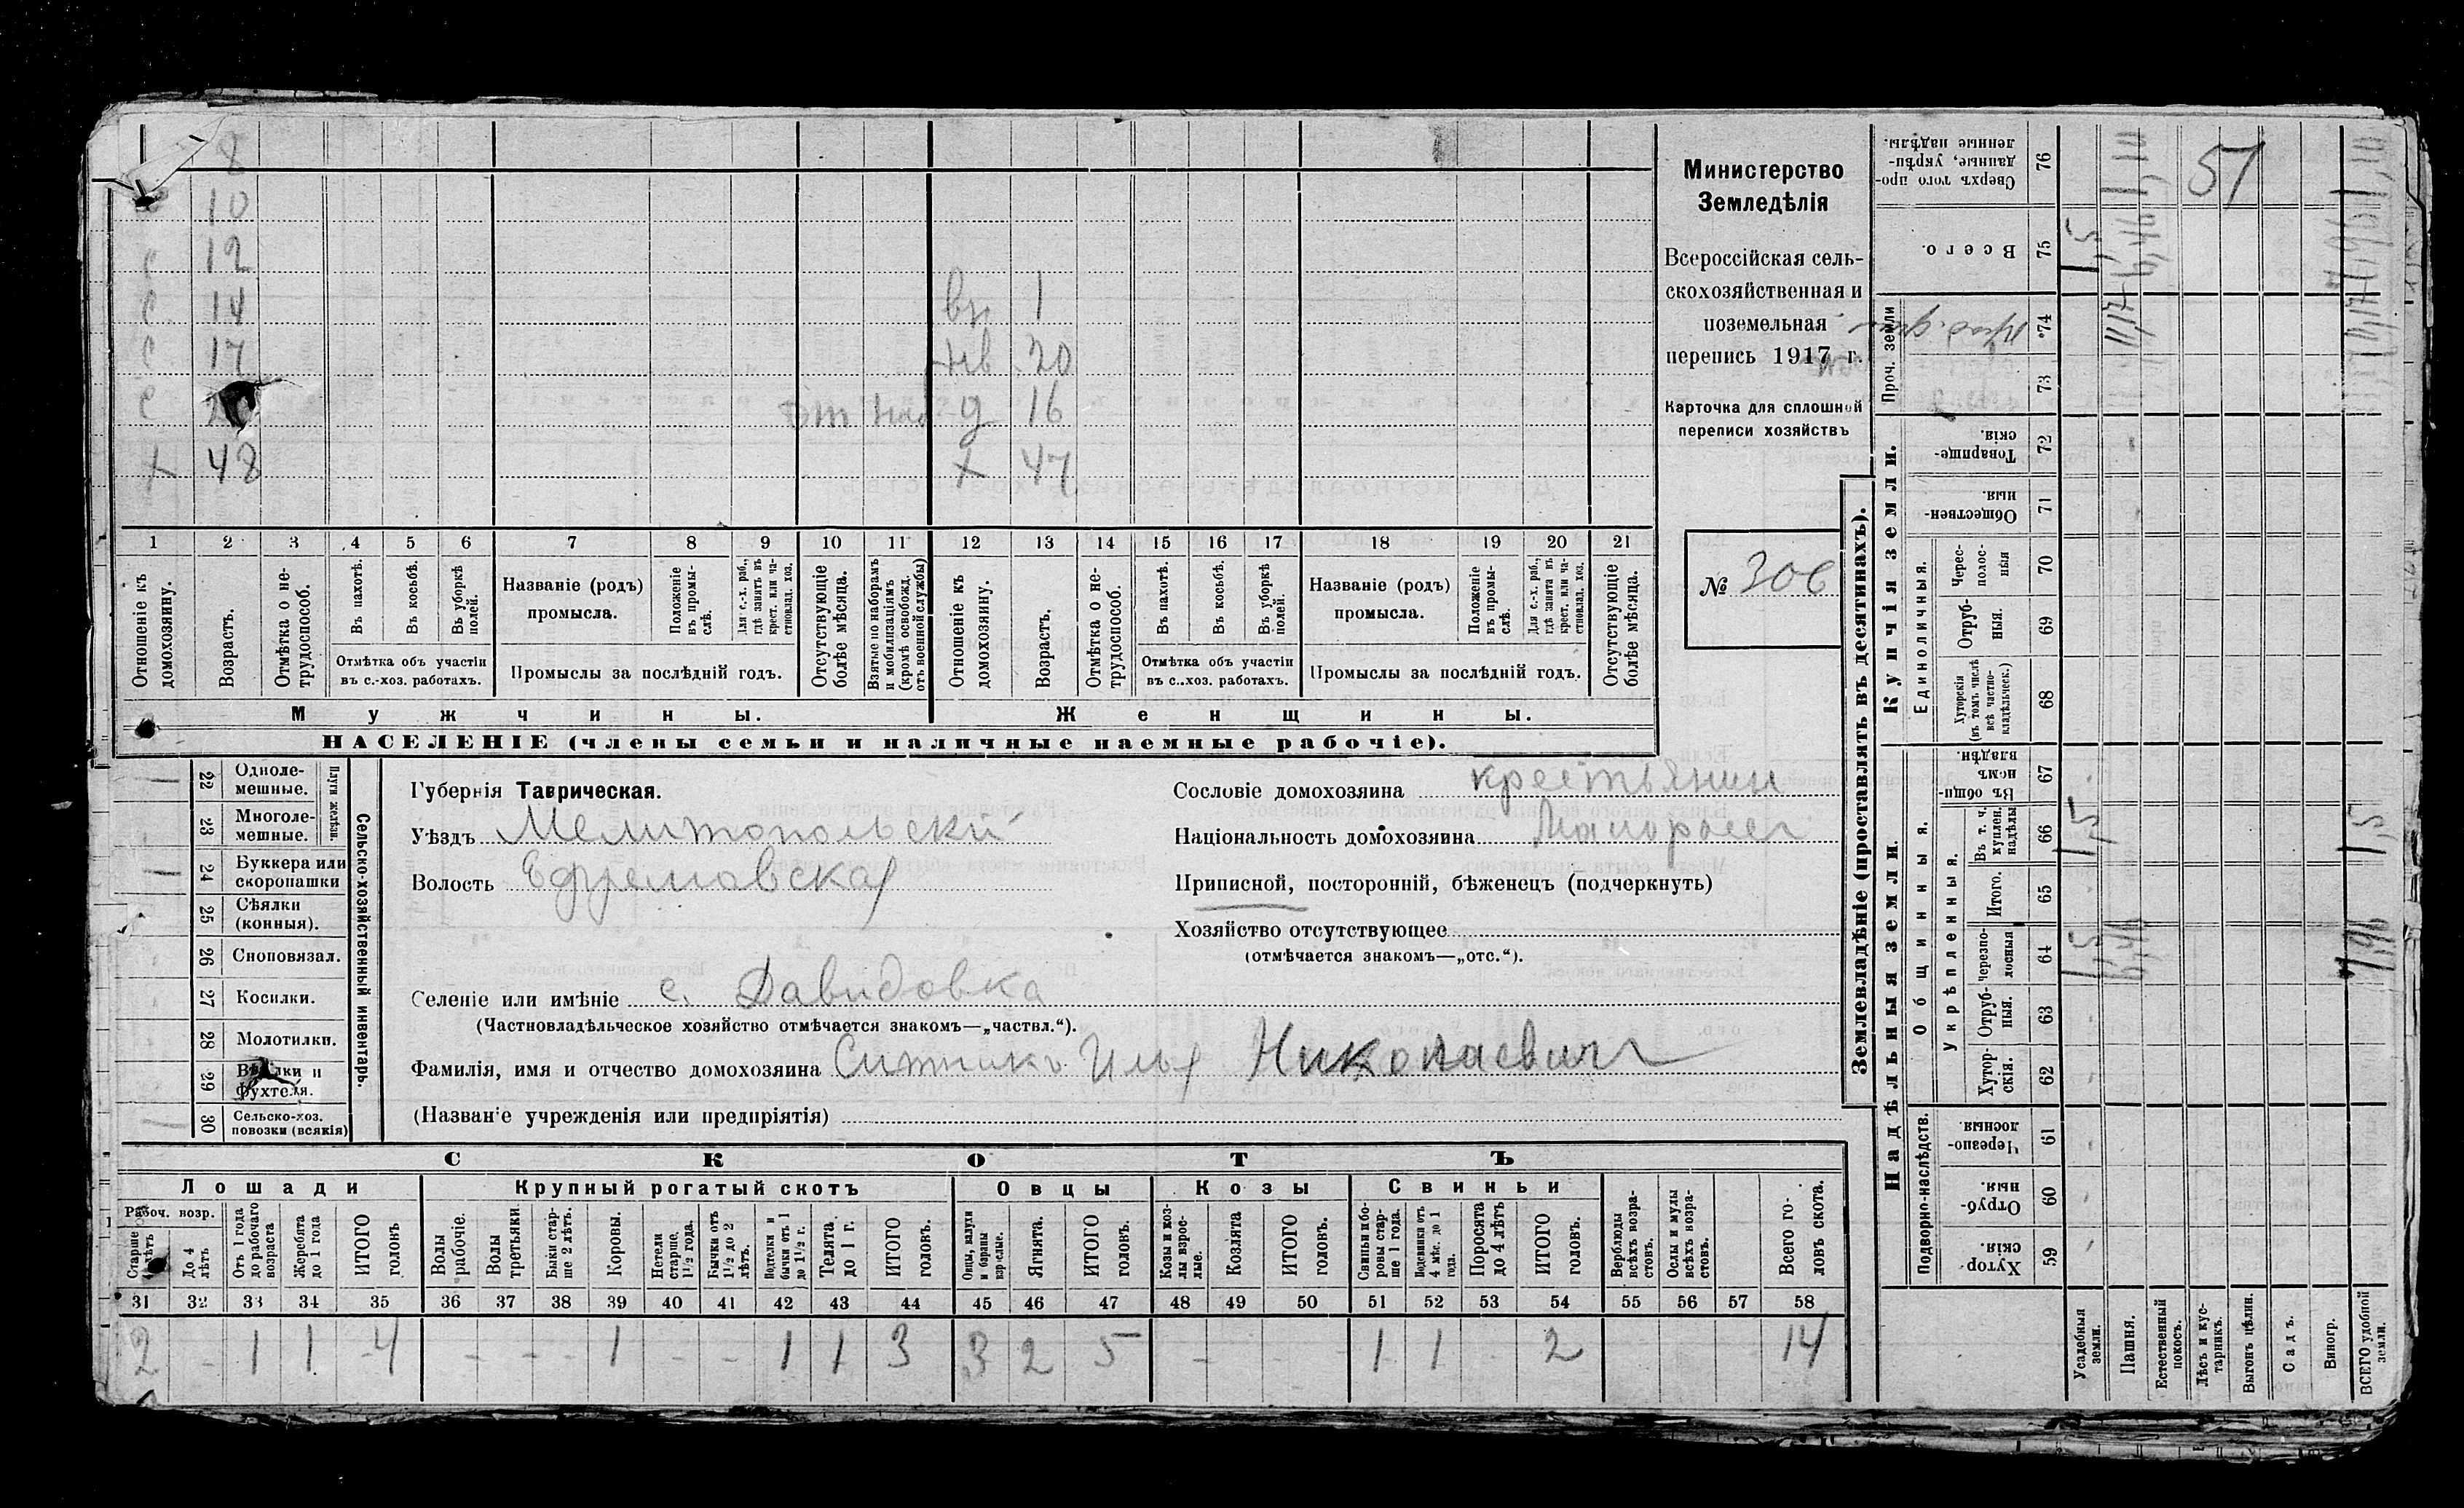 8
10
с 12
с 14 вн 1
с 17 нв 20
с от над д 16
х 48 х 47
1 2 3 4 5 6 7 8 9 10 11 12 13 14 15 16 17 18 19 20 21
Отношеніе къ домохозяину.
Возрастъ.
Отмѣтка о не-
трудоспособ.
Въ пахотѣ.
Въ косьбѣ.
Въ уборкѣ полей.
Отмѣтка объ участіи
въ с.-хоз. работахъ.
Названіе (родъ)
промысла.
Положеніе въ промы-
слѣ.
Для с.-х. раб.,
гдѣ занятъ въ
крест. или ча-
стновлад. хоз.
Промыслы за послѣдній годъ.
Отсутствующіе
болѣе мѣсяца.
Взятые по наборамъ
и мобилизаціямъ
(кромѣ освобожд.
отъ военной службы)
Отношеніе къ
домохозяину.
Возрастъ.
Отмѣтка о не-
трудоспособ.
Въ пахотѣ.
Въ косьбѣ.
Въ уборкѣ
полей.
Отмѣтка объ участіи
въ с.-хоз. работахъ.
Названіе (родъ)
промысла.
Положеніе
въ промы-
слѣ.
Для с.-х. раб.,
гдѣ занята въ
крест. или ча-
стновлад. хоз.
Промыслы за послѣдній годъ.
Отсутствующіе
болѣе мѣсяца.
Мужчины. Женщины.
НАСЕЛЕНІЕ (члены семьи и наличные наемные рабочіе).
Министерство
Земледѣлія
Всероссійская сель-
скохозяйственная и
поземельная
перепись 1917 г.
Карточка для сплошной
переписи хозяйствъ
№ 306
Сельско-хозяйственный инвентарь.
Плуги желѣзн.
22 Одноле-
мешные.
23 Многоле-
мешные.
24 Буккера или
скоропашки
25 Сѣялки
(конныя).
26 Сноповязал.
27 Косилки.
28 Молотилки.
29 Вѣялки и
фухтеля.
30 Сельско-хоз.
повозки (всякія)
Губернія Таврическая.
Уѣздъ Мелитопольскій
Волость Ефремовская
Сословіе домохозяина крестьянин
Національность домохозяина Малоросс
Приписной, посторонній, бѣженецъ (подчеркнуть)
Хозяйство отсутствующее
(отмѣчается знакомъ—„отс.“).
Селеніе или имѣніе с. Давидовка
(Частновладѣльческое хозяйство отмѣчается знакомъ—„частвл.“).
Фамилія, имя и отчество домохозяина Ситникъ Илья Николаевич
(Названіе учрежденія или предпріятія)
СКОТЪ
Лошади Крупный рогатый скотъ Овцы Козы Свиньи
Рабоч. возр.
Старше
4 лѣтъ
До 4
лѣтъ
Отъ 1 года
до рабочаго
возраста
Жеребята
до 1 года
ИТОГО
головъ
Волы
рабочіе.
Волы
третьяки.
Быки стар-
ше 2 лѣтъ.
Коровы.
Нетели
старше
1½ года.
Бычки отъ
1½ до 2
лѣтъ.
Подтелки и
бычки отъ 1
до 1½ г.
Телята.
до 1 г.
ИТОГО
головъ.
Овцы, валухи
и бараны
взрослые.
Ягнята.
ИТОГО
головъ.
Козы и коз-
лы взрос-
лые.
Козлята
ИТОГО
головъ.
Свиньи и бо-
ровы стар-
ше 1 года.
Подсвинки отъ
4 мѣс. до 1
года.
Поросята
до 4 лѣтъ
ИТОГО
головъ.
Верблюды
всѣхъ возра-
стовъ.
Ослы и мулы
всѣхъ возра-
стовъ.
Всего го-
ловъ скота.
31 32 33 34 35 36 37 38 39 40 41 42 43 44 45 46 47 48 49 50 51 52 53 54 55 56 57 58
2 - 1 1 4 - - - 1 - - 1 1 3 3 2 5 - - - 1 1 - 2 14
Землевладѣніе (проставлять въ десятинахъ).
Надѣльныя земли.
Купчія земли.
Проч. земли
Подворно-наслѣдств.
Общинныя.
Укрѣпленныя.
Единоличныя.
Сверхъ того про-
данные, укрѣп-
ленные надѣлы.
76
Всего.
75
74
73
Товарище-
скія.
72
Обществен-
ныя.
71
Черес-
полос-
ныя
70
Отруб-
ныя.
69
Хуторскія
(въ томъ числѣ
всѣ частно-
владѣльческ.)
68
Въ общи-
номъ
владѣн.
67
Въ т. ч.
куплен.
надѣлы
66
Итого.
65
Черезпо-
лосныя
64
Отруб-
ныя.
63
Хутор-
скія.
62
Черезпо-
лосныя.
61
Отруб-
ныя.
60
Хутор-
скія.
59
Усадебныя
земли.
Пашня.
Естественный
покосъ.
Лѣсъ и кус-
тарникъ.
Выгонъ цѣлин.
Садъ.
Виногр.
ВСЕГО удобной
земли.
57
1,5
1,5
1,5
6,46
1,5
7,96